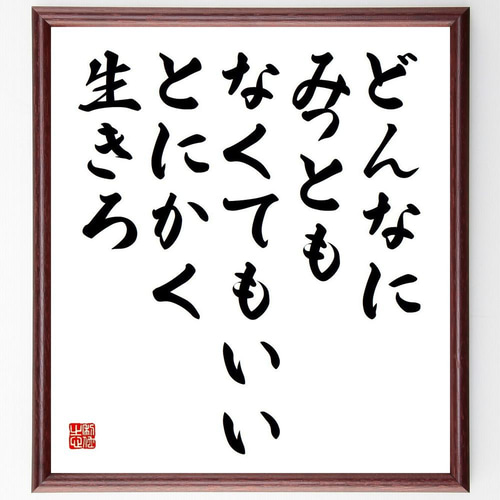 どんなに
みっとも
なくてもいい
とにかく
生きろ